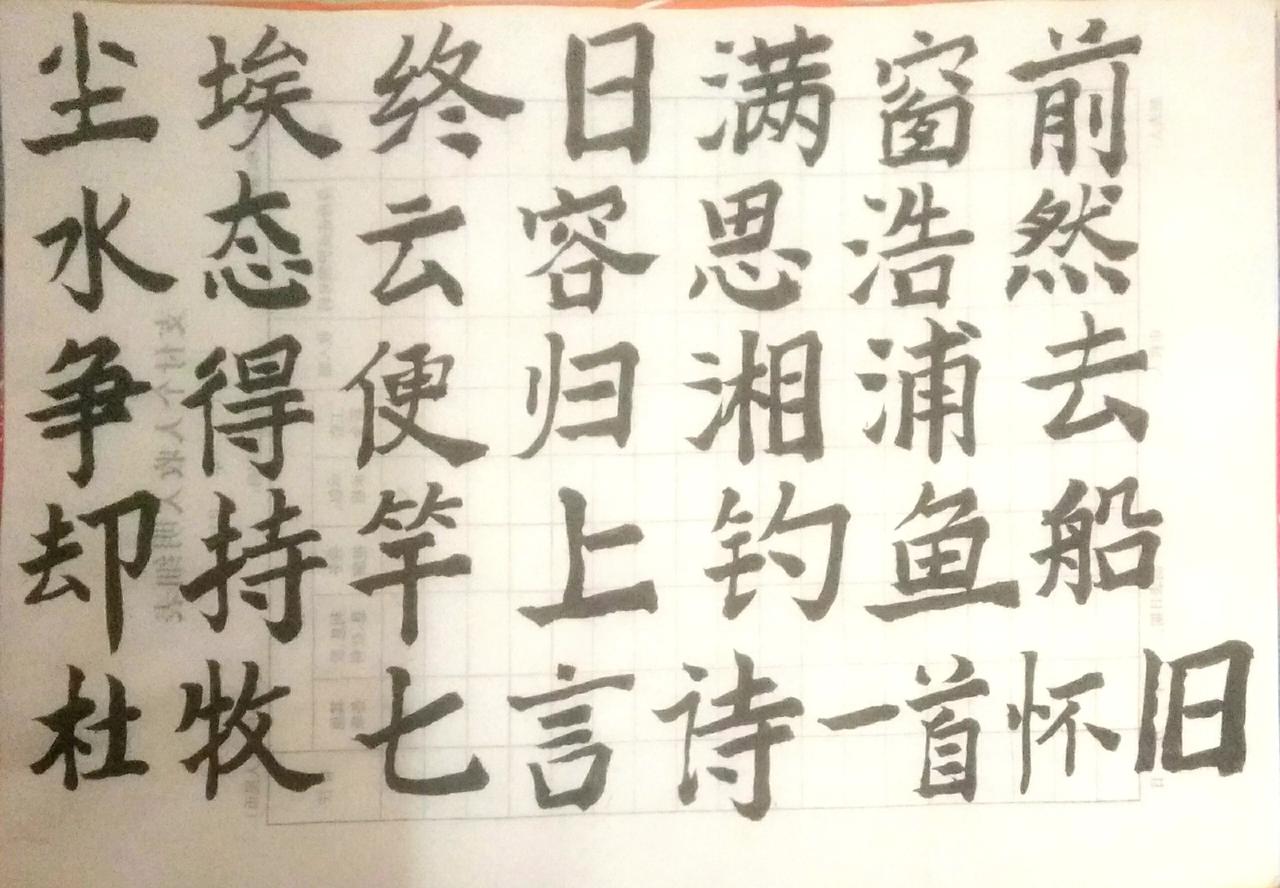 尘埃终日满窗前
水态云容思浩然
争得便归湘浦去
却持竿上钓鱼船
杜牧七言诗一首怀旧